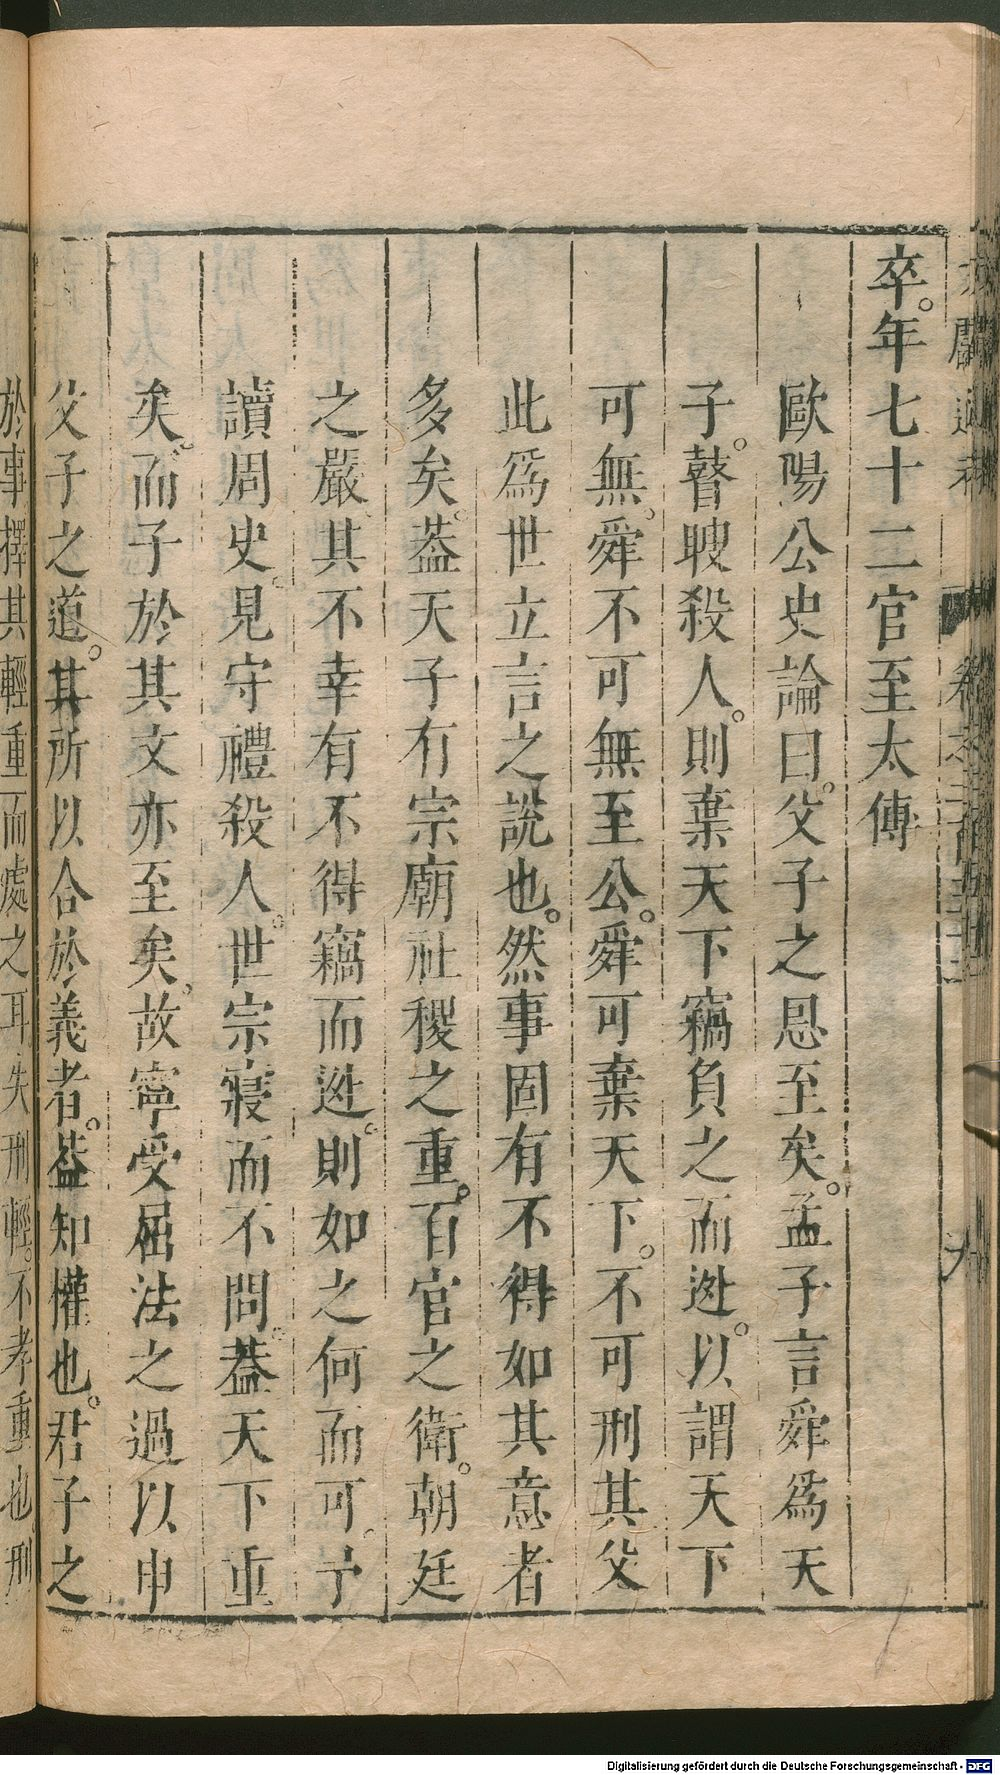 卒。年七十二官至太傅
歐陽公史論曰。父子之恩至矣。孟子言舜爲天
子。瞽瞍殺人。則棄天下竊負之而逃。以謂天下
可無舜。不可無至公。舜可棄天下。不可刑其父
此爲世立言之說也。然事固有不得如其意者
多矣。葢天子有宗廟社稷之重。百官之衛。朝廷
之嚴其不幸有不得竊而逃。則如之何而可。予
讀周史。見守禮殺人。世宗寢而不問。葢天下重
矣。而子於其父亦至矣。故寧受屈法之過以申
父子之道。其所以合於義者。葢知權也。君子之
於事擇其輕重而處之耳失刑輕。不孝重也刑
Digitalisierung gefördert durch die Deutsche Forschungsgemeinschaft - DFG